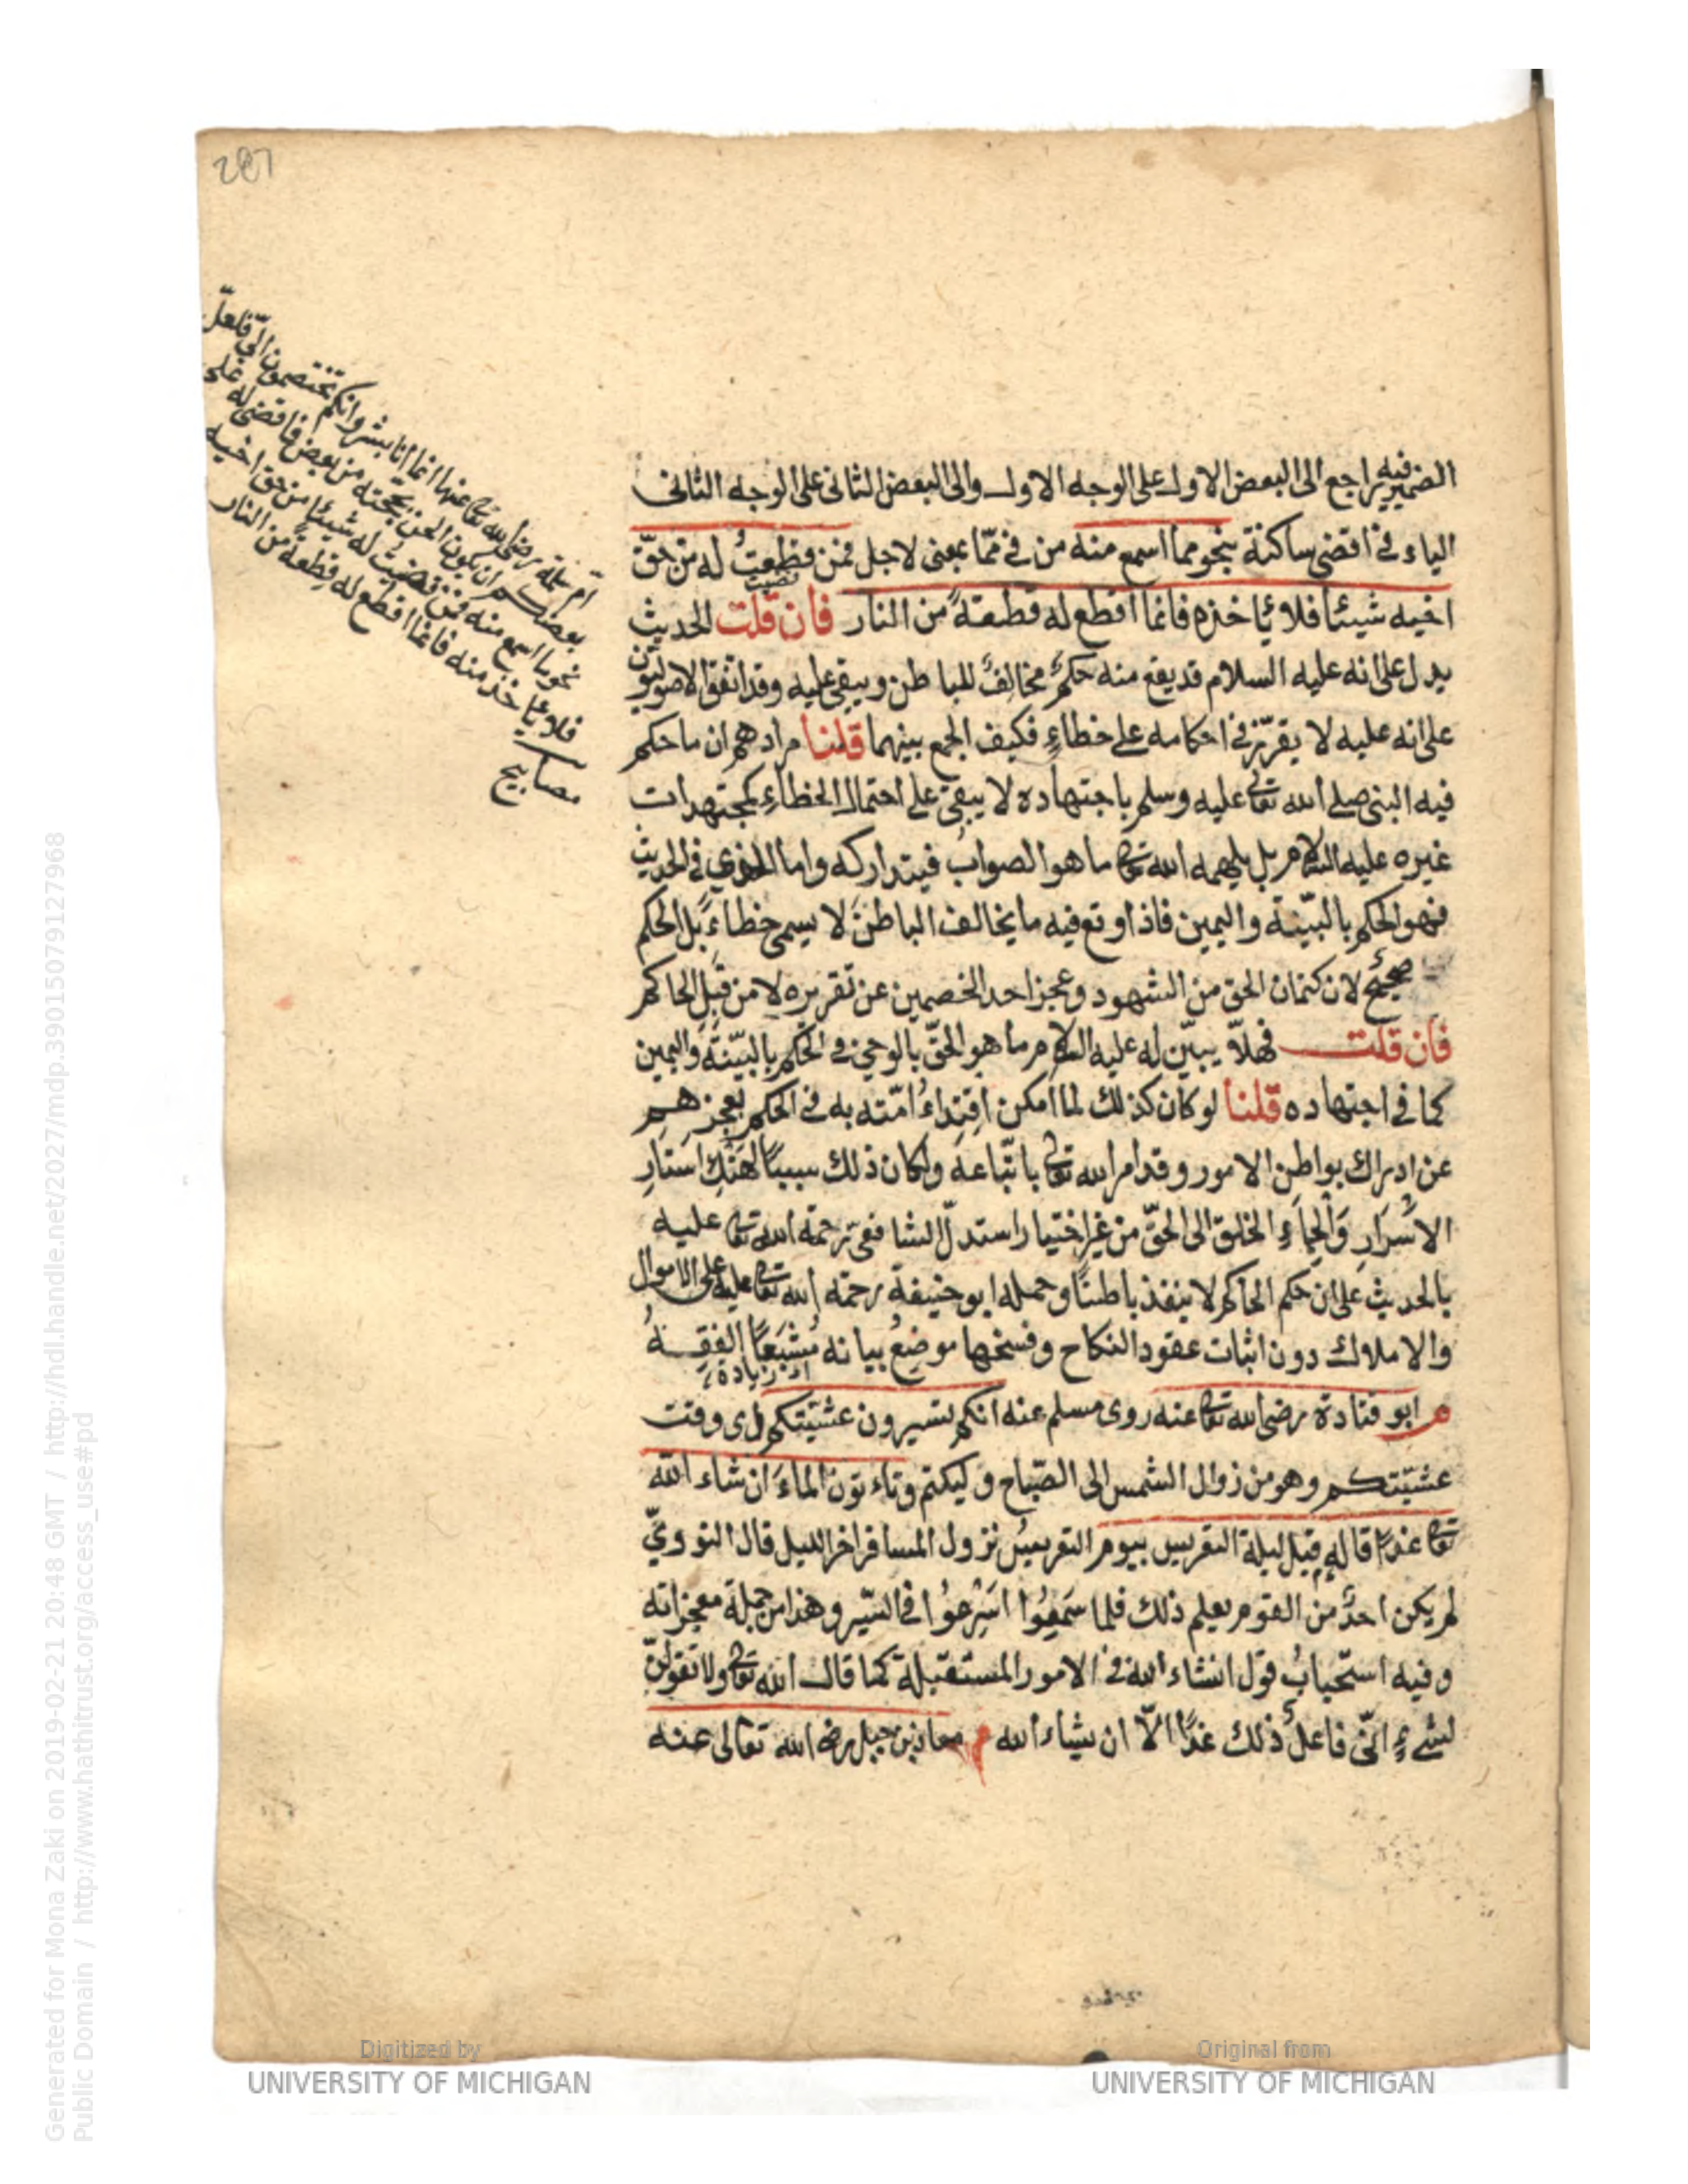 287
الضمير فيه راجع الى البعض الاول على الوجه الاول والى البعض الثانى على الوجه الثانى
الياء فى اقضى ساكنة بنحو مما اسمع منه من فى ممّا بمعنى لاجل فمن قطعتُ له من حقّ
قضيت
اخيه شيئا فلا يأخذه فانما اقطع له قطعةً من النار فان قلت الحديث
يدل على انه عليه السلام قد يقع منه حكمٌ مخالفٌ للباطن ويبقى عليه وقد اتفق الاصوليون
على انه عليه لا يقرّ فى احكامه على خطاءٍ فكيف الجمع بينهما قلنا مرادهم ان ما حكم
فيه النبى صلى الله تعالى عليه وسلم باجتهاده لا يبقى على احتمال الخطاءِ كمجتهدات
غيره عليه السلام بل يلهمه الله تعالى ما هو الصواب فيتداركه واما الذى فى الحديث
فهو الحكم بالبيّنة واليمين فاذا وقع فيه ما يخالف الباطن لا يسمى خطاءً بل الحكم
صحيحٌ لان كتمان الحق من الشهود وعجز احد الخصمين عن تقريره لا من قبل الحاكم
فان قلت فهلاّ يبيّن له عليه السلام ما هو الحقّ بالوحى فى الحكم بالبيّنة واليمين
كما فى اجتهاده قلنا لو كان كذلك لما امكن اقتداءُ امّته به فى الحكم لعجزهم
عن ادراك بواطن الامور وقد امر الله تعالى باتّباعه ولكان ذلك سببًا لهتك استار
الاسرار والجاءِ الخلق الى الحقّ من غير اختيار استدلّ الشافعى رحمة الله تعالى عليه
بالحديث على ان حكم الحاكم لا ينفذ باطنًا وحمله ابو حنيفة رحمة الله تعالى عليه على الاموال
والاملاك دون اثبات عقود النكاح وفسخها موضع بيانه مُشبَعًا الفقه
اى زيادة
م ابو قتادة رضى الله تعالى عنه روى مسلم عنه انكم تسيرون عشيّتكم اى وقت
عشيّتكم وهو من زوال الشمس الى الصّباح وليلتكم وتاءتون الماءَ ان شاء الله
تعالى غدًا قاله قبل ليلة التعريس بيوم التعريسُ نزول المسافر اخر الليل قال النووىّ
لم يكن احدٌ من القوم يعلم ذلك فلما سَمِعُوا اسْرعُوا فى السّير وهذا من جملة معجزاته
وفيه استحبابُ قول انشاء الله فى الامور المستقبلة كما قال الله تعالى ولا تقولنّ
لشىءٍ انّى فاعلٌ ذلك غدًا الاّ ان يشاء الله م معاذ بن جبل رضى الله تعالى عنه
امّ سلمة رضى الله تعالى عنها انما انا بشر وانكم تختصمون الىّ فلعلّ
بعضكم ان يكون الحن بحجته من بعض فاقضى له على
نحو ما اسمع منه فمن قضيتُ له شيئًا من حق اخيه
فلا يأخذ منه فانما اقطع له قطعة من النار
مصابيح
Generated for Mona Zaki on 2019-02-21 20:48 GMT / http://hdl.handle.net/2027/mdp.39015079127968
Public Domain / http://www.hathitrust.org/access_use#pd
Digitized by
UNIVERSITY OF MICHIGAN
Original from
UNIVERSITY OF MICHIGAN